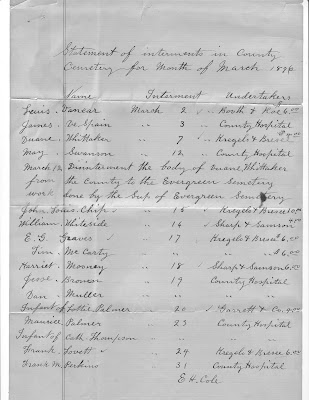 Statement of interments in County
Cemetery for Month of March 1896
Name Interment Undertakers
Louis Vanear March 2 " Booth & 6.00
James De Spain " 3 County Hospital
Duane Whittaker " 7 " Kregelo & Bresee
May Swanson " 12 " County Hospital
March 12, Disinterment the body of Duane Whittaker
from the County to the Evergreen Semetery
work done by the Sup of Evergreen Semetery
John Louis Chip " 15 " Kregelo & Bresee 10.00
William Whiteside " 14 " Sharp & Samson
E. G. Graves " 17 Kregelo & Bresee 6.00
Tim. McCarty " " " " 6.00
Harriet Mooney " 18 " Sharp & Samson 6.00
Jesse Brown " 19 County Hospital
Dan Muller " " " "
Infant of Lottie Palmer " 20 " Garrett & Co. 4.00
Maurice Palmer " 23 County Hospital
Infant of Cath Thompson " " "
Frank Lovett " " 24 Kregelo & Bresee 6.00
Frank M. Perkins " 31 County Hospital
E. H. Cole